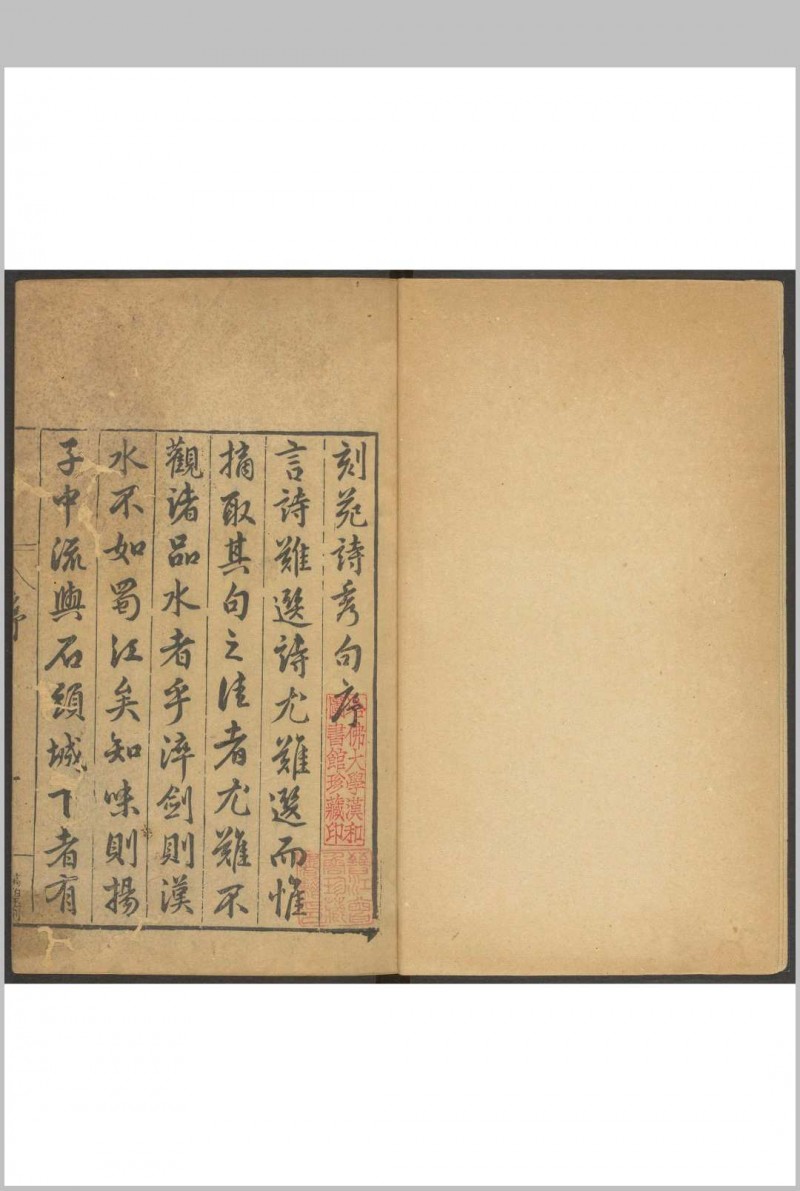 刻苑詩秀句序
言詩難選詩尤難選而惟
摘取其句之佳者尤難不
觀諸品水者乎淬劍則漢
水不如蜀江矣知味則揚
子中流與石頭城下者有
序
哈佛大學漢和
圖書館珍藏印